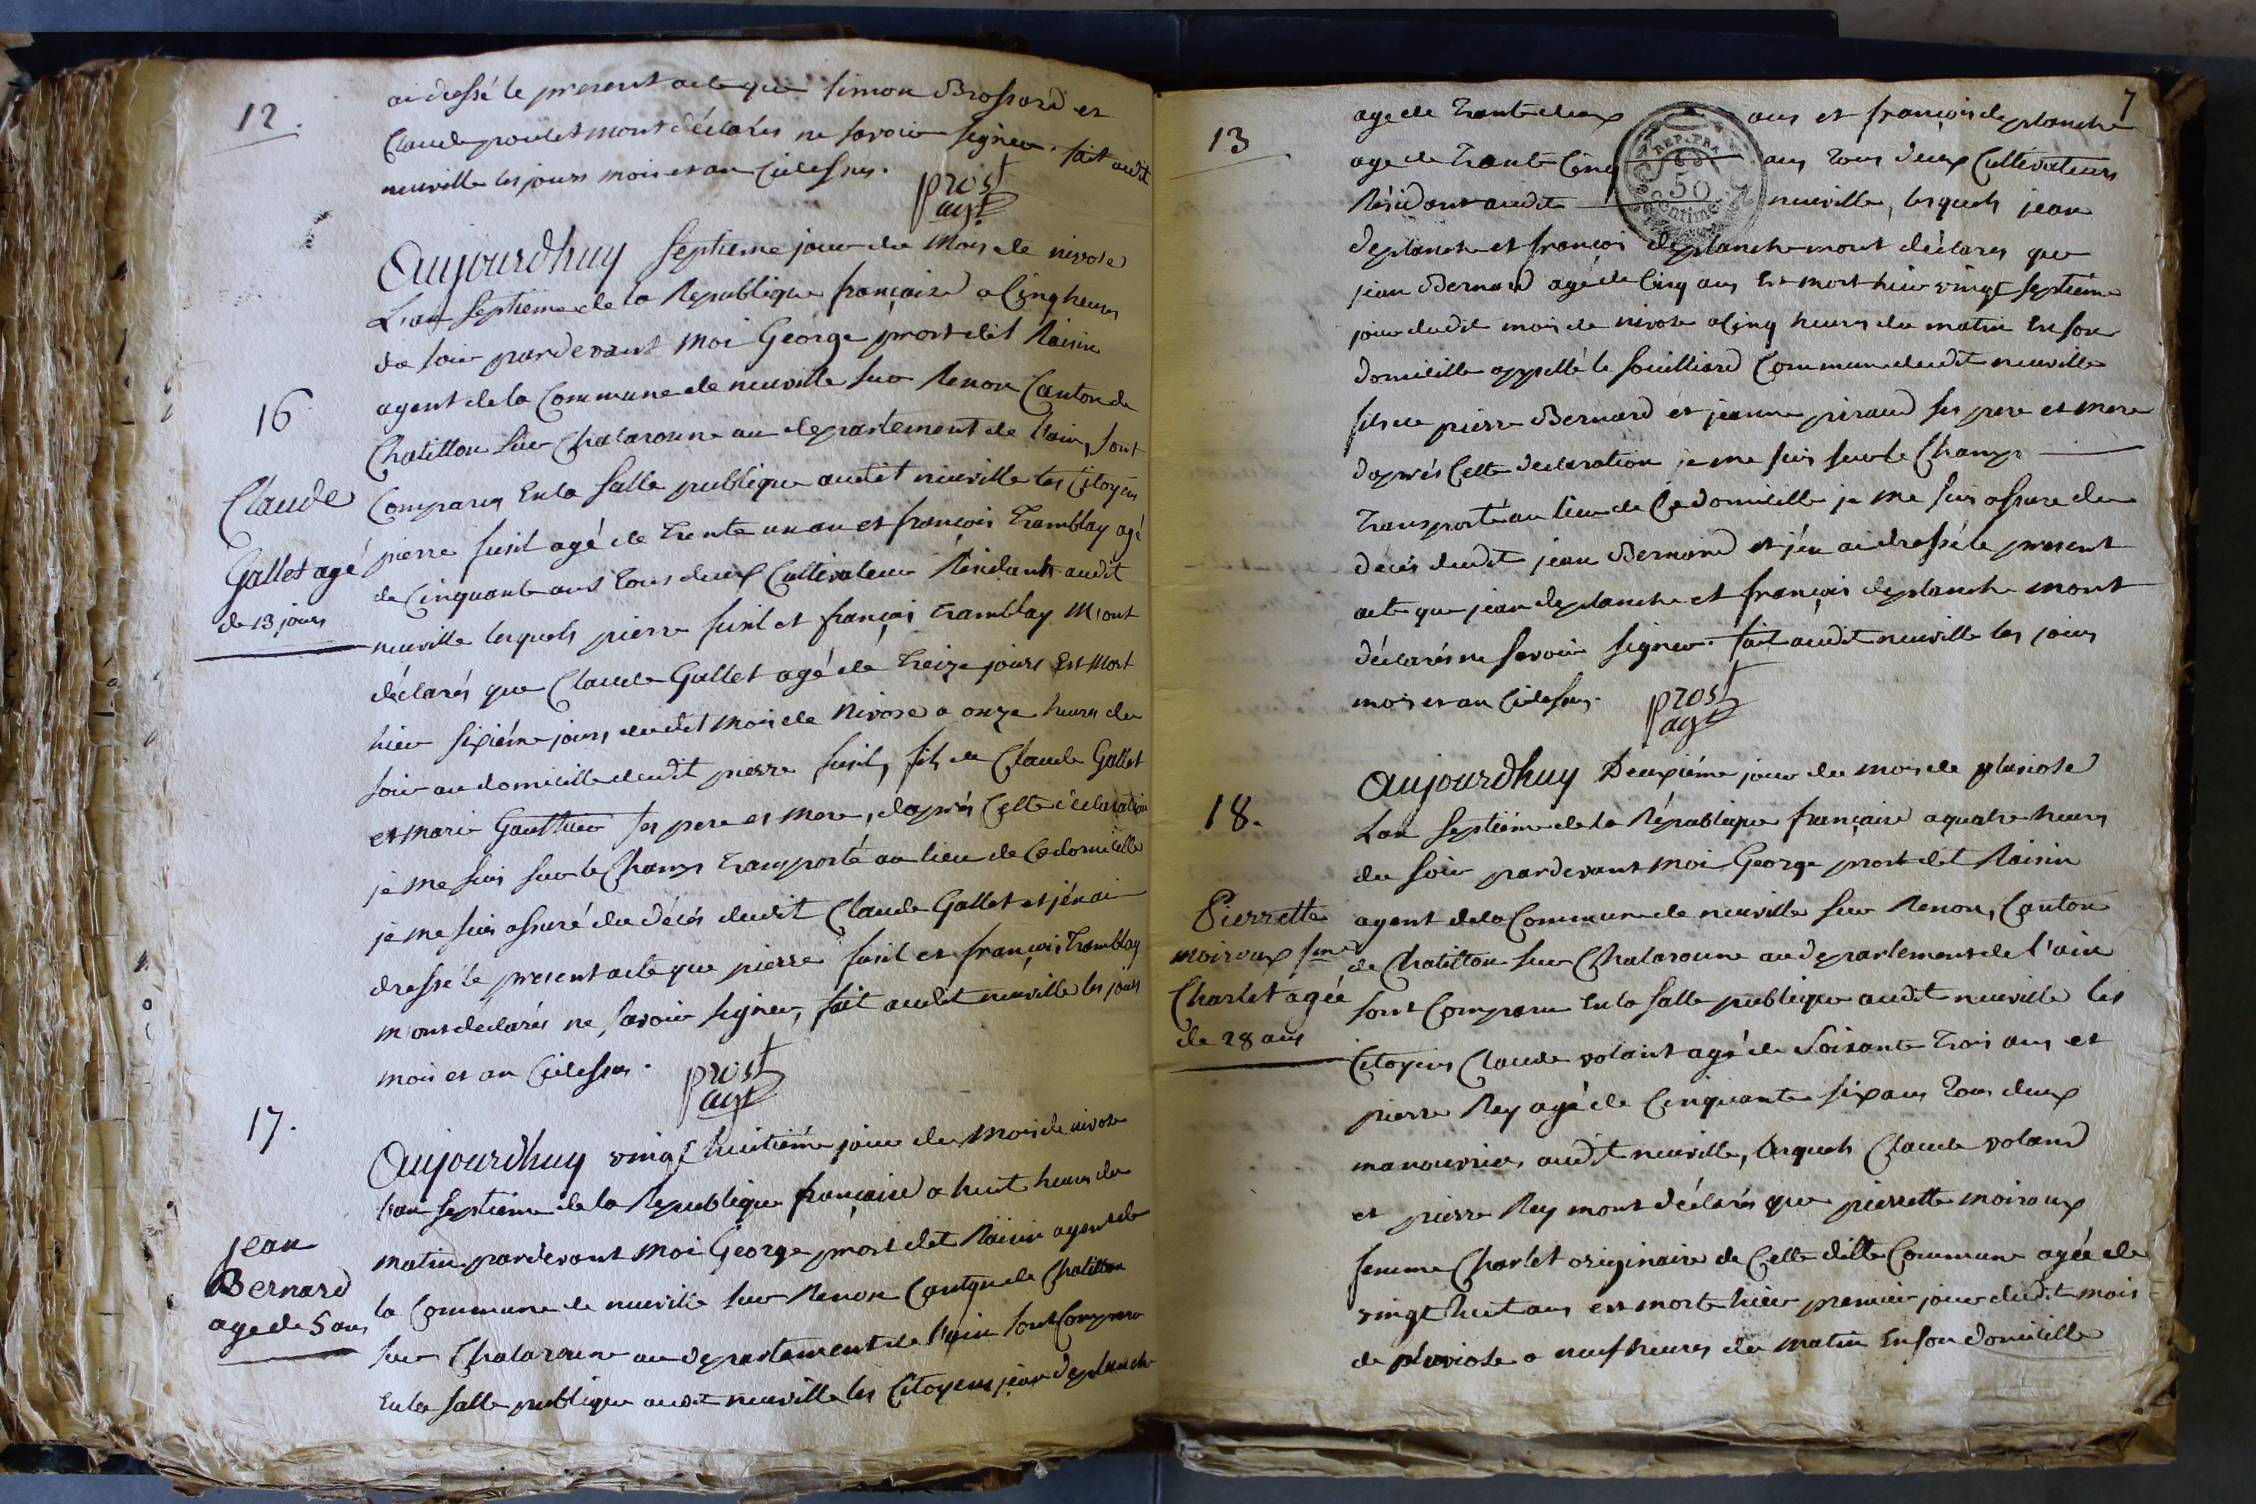 12.
ai dressé le present acte que simon Brossard et
Claude poulet mont déclarés ne savoir signer. fait audit
neuville les jours mois et an Cidessus.
prost
agt
Aujourdhuy septieme jour du mois de nivose
L'an septieme de la Republique française a Cinq heures
de soir pardevant moi George prost dit Raisin
agent de la Commune de neuville sur Renon Canton de
16
Chatillon sur Chalaronne au departement de l'ain, sont
Comparus En la salle publique audit neuville les Citoyens
pierre fusil agé de trente un an et françois tramblay agé
de Cinquante ans tous deux Cultivateurs Résidants audit
neuville lesquels pierre fusil et françois tramblay m'ont
Claude
Gallet agé
de 13 jours
déclarés que Claude Gallet agé de treize jours Est mort
hier sixiéme jours dudit mois de Nivose a onze heures du
soir au domicille dudit pierre fusil, fils de Claude Gallet
et marie Gauthier ses pere et mere, d'aprés Cette déclaration
je me suis sur le Champ transporté au lieu de Ce domicille
je me suis assuré du décés dudit Claude Gallet et j'en ai
dressé le present acte que pierre fusil et françois tramblay
m'ont déclarés ne savoir signer, fait audit neuville les jours
mois et an Cidessus.
prost
agt
17.
Aujourdhuy vingt huitiéme jour du mois de nivose
l'an septieme de la Republique française a huit heures du
matin pardevant moi George prost dit Raisin agent de
la Commune de neuville sur Renon Canton de Chatillon
sur Chalaronne au departement de l'ain sont Comparu
En la salle publique audit neuville les Citoyens jean deplanche
jean
Bernard
age de 5 ans
7
13
age de trente deux ans et françois deplanche
age de trente Cinq ans tous deux Cultivateurs
Résidant audit neuville, lesquels jean
deplanche et françois deplanche mont déclarés que
REP. FRA.
50
Centime
jean Bernard agé de Cinq ans Est mort hier vingt septieme
jour dudit mois de nivose a Cinq heures du matin En son
domicille appellé le souilliard Commune dudit neuville
fils de pierre Bernard et jeanne piraud ses pere et mere
d'aprés Cette declaration je me suis sur le Champ
transporté au lieu de Ce domicille je me suis assure du
decés dudit jean Bernard et j'en ai dressé le present
acte que jean deplanche et françois deplanche mont
déclarés ne savoir signer. fait audit neuville les jours
mois et an Cidessus.
prost
agt
18.
Aujourdhuy Deuxiéme jour du mois de pluviose
L'an septiéme de la République française a quatre heures
du soir pardevant moi George prost dit Raisin
agent de la Commune de neuville sur Renon, Canton
de Chatillon sur Chalaronne au departement de l'ain
sont Comparu En la salle publique audit neuville les
Pierrette
moiroux fme
Charlet agée
de 28 ans
Citoyens Claude volant agé de Soixante trois ans et
pierre Rey agé de Cinquante six ans tous deux
manouvrier audit neuville, lesquels Claude voland
et pierre Rey mont déclarés que pierrette moiroux
femme Charlet originaire de Cette ditte Commune agée de
vingt huit ans est morte hier premier jour dudit mois
de pluviose a neuf heures du matin En son domicille